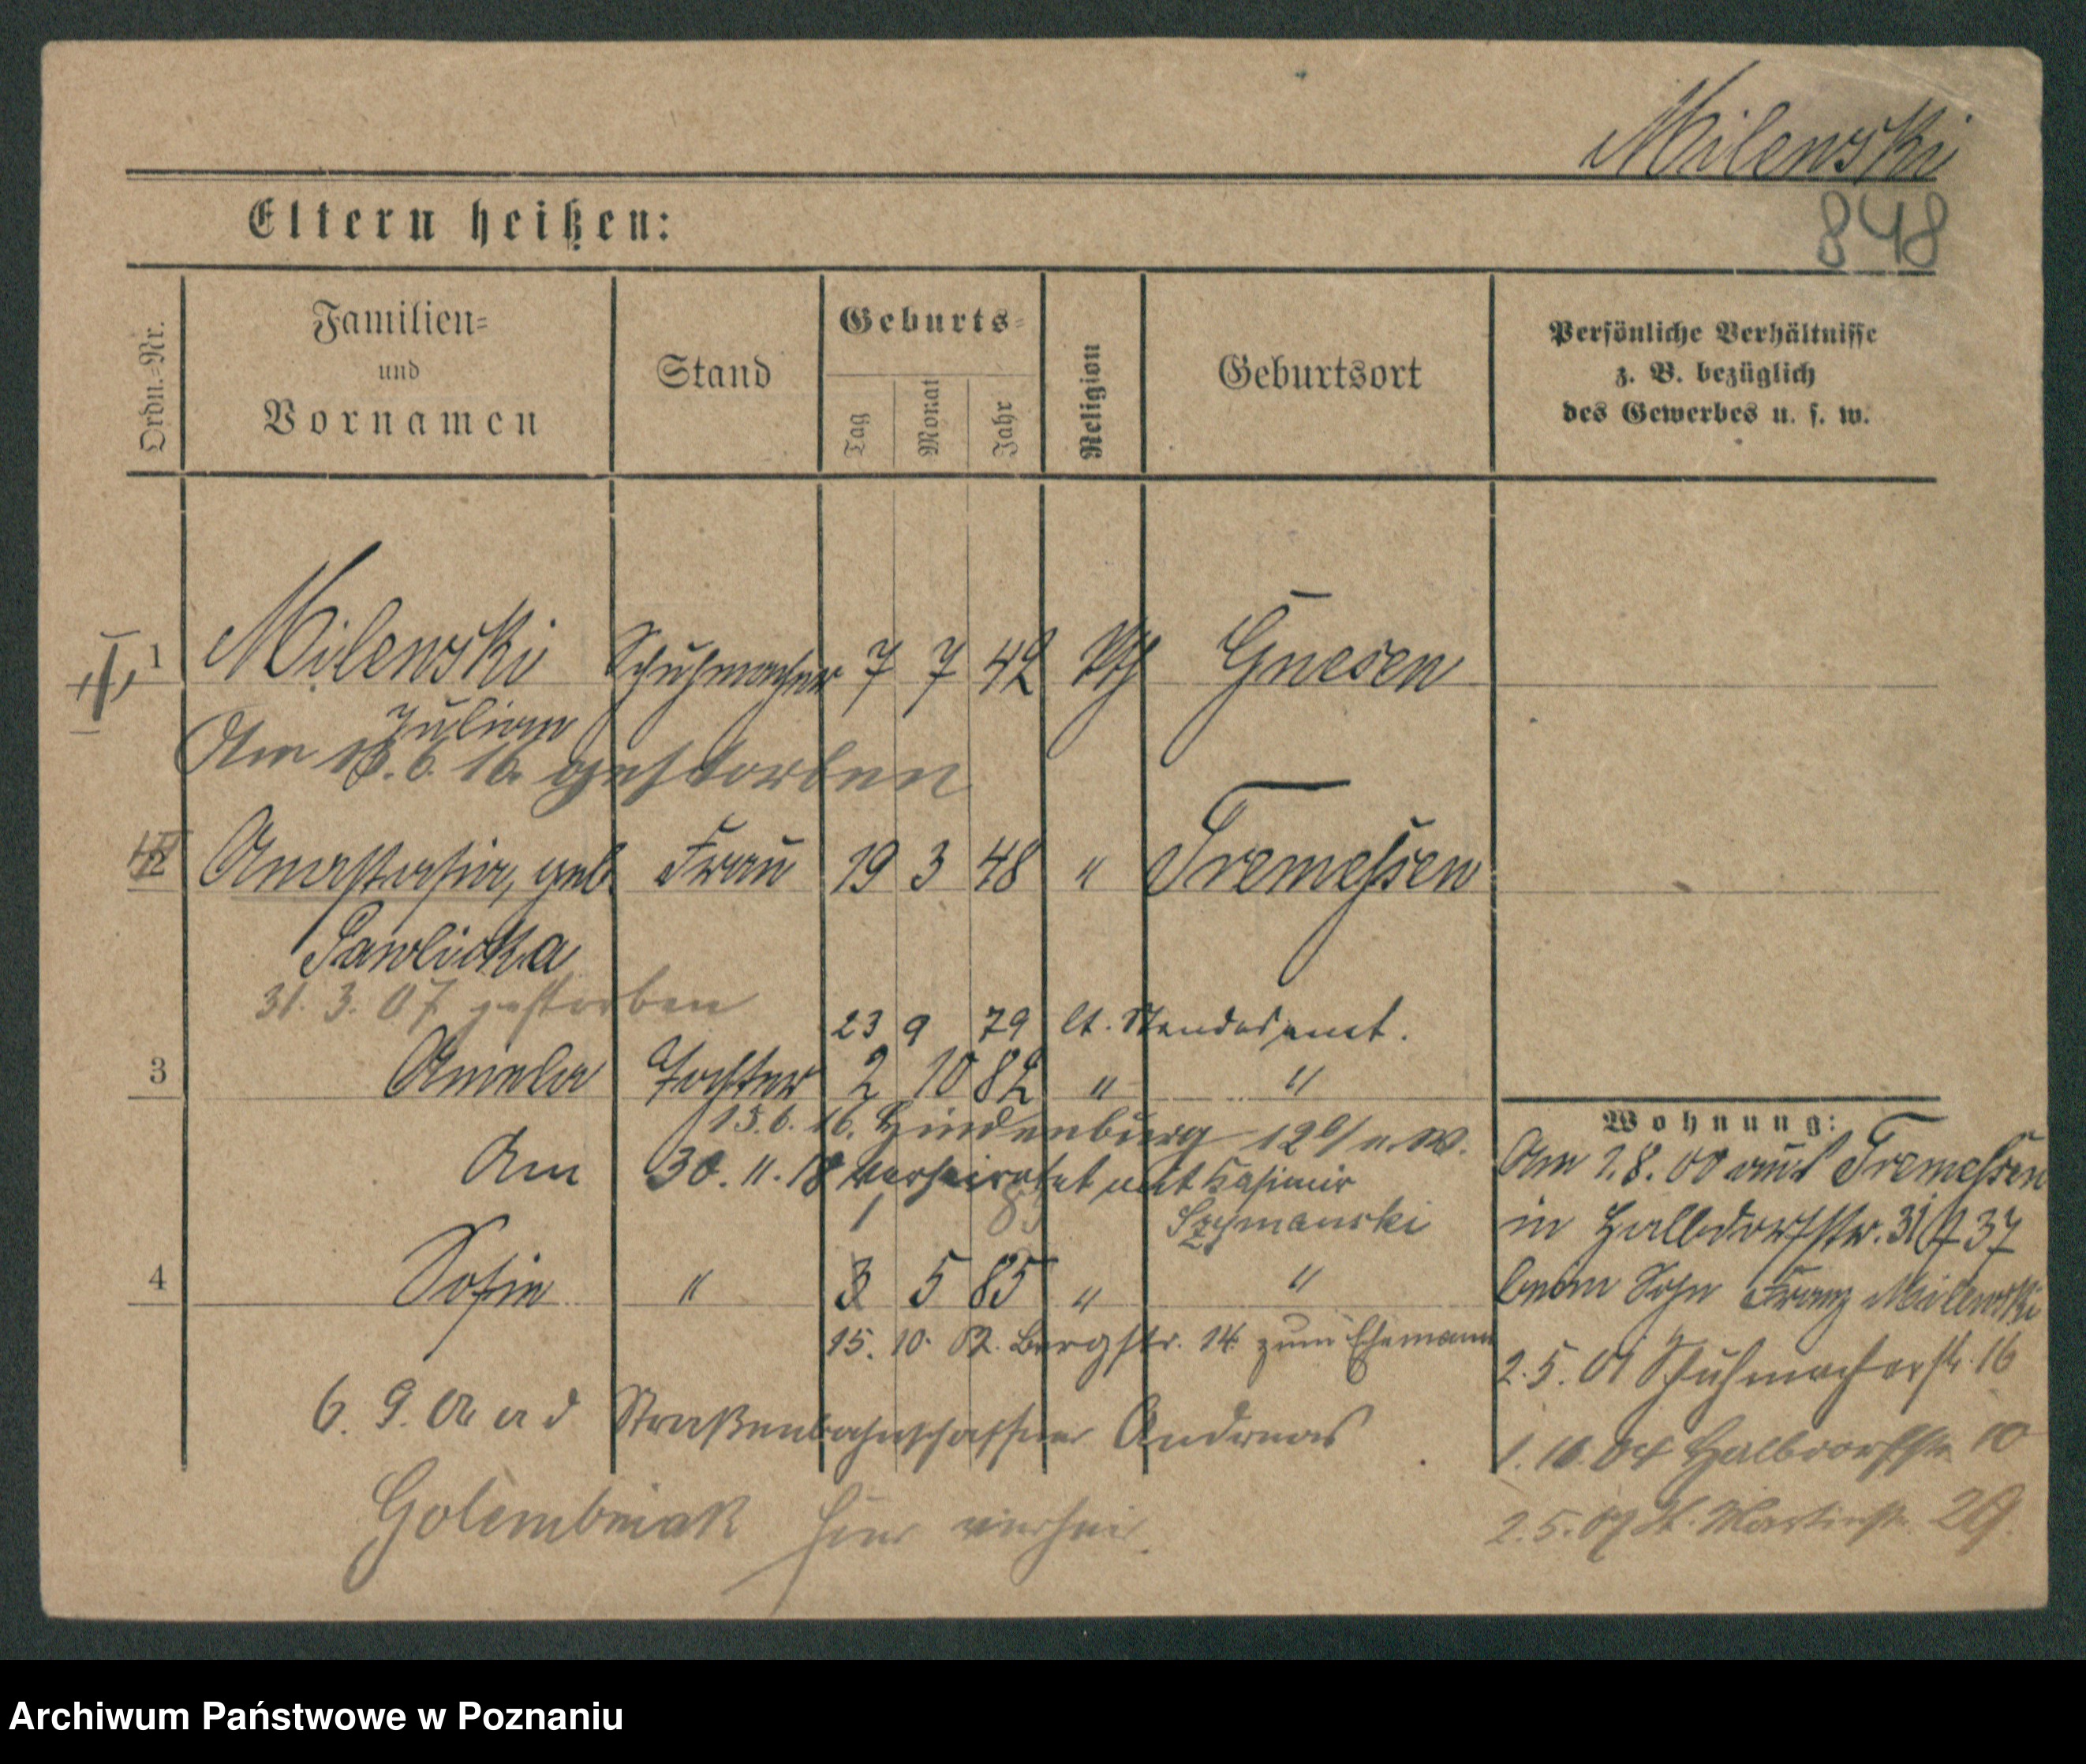 Milewski
848
Eltern heißen:
Ordn.=Nr.
Familien=
und
Vornamen
Stand
Geburts=
Tag
Monat
Jahr
Religion
Geburtsort
Persönliche Verhältnisse
z. B. bezüglich
des Gewerbes u. s. w.
1 Milewski Schuhmacher 7 7 42 kth Gnesen
Julian
Am 13.6.16. gestorben
2 Anastasia, geb. Frau 19 3 48 " Tremessen
Pawlicka
31. 3. 07 gestorben
23 9 79 lt. Standesamt.
3 Amela Tochter 2 10 82 " "
15.6.16. Hindenburg 12
Am 30. 11. 18 verheiratet mit Kasimir
Szymanski
1 83
4 Sofie " 3 5 85 " "
15. 10. 02. Bergstr. 14 zum Ehemann
6. 9. Straßenbahnschaffner Andreas
Golembniak hier verhei.
Wohnung:
Am 2.8.00 aus Tremessen
in Halbdorfstr. 31 37
beim Sohn Franz Milewski
2.5.01 Schuhmacherstr. 16
1.10.04 Halbdorfstr. 10
2.5.07 St. Martinstr. 29.
Archiwum Państwowe w Poznaniu